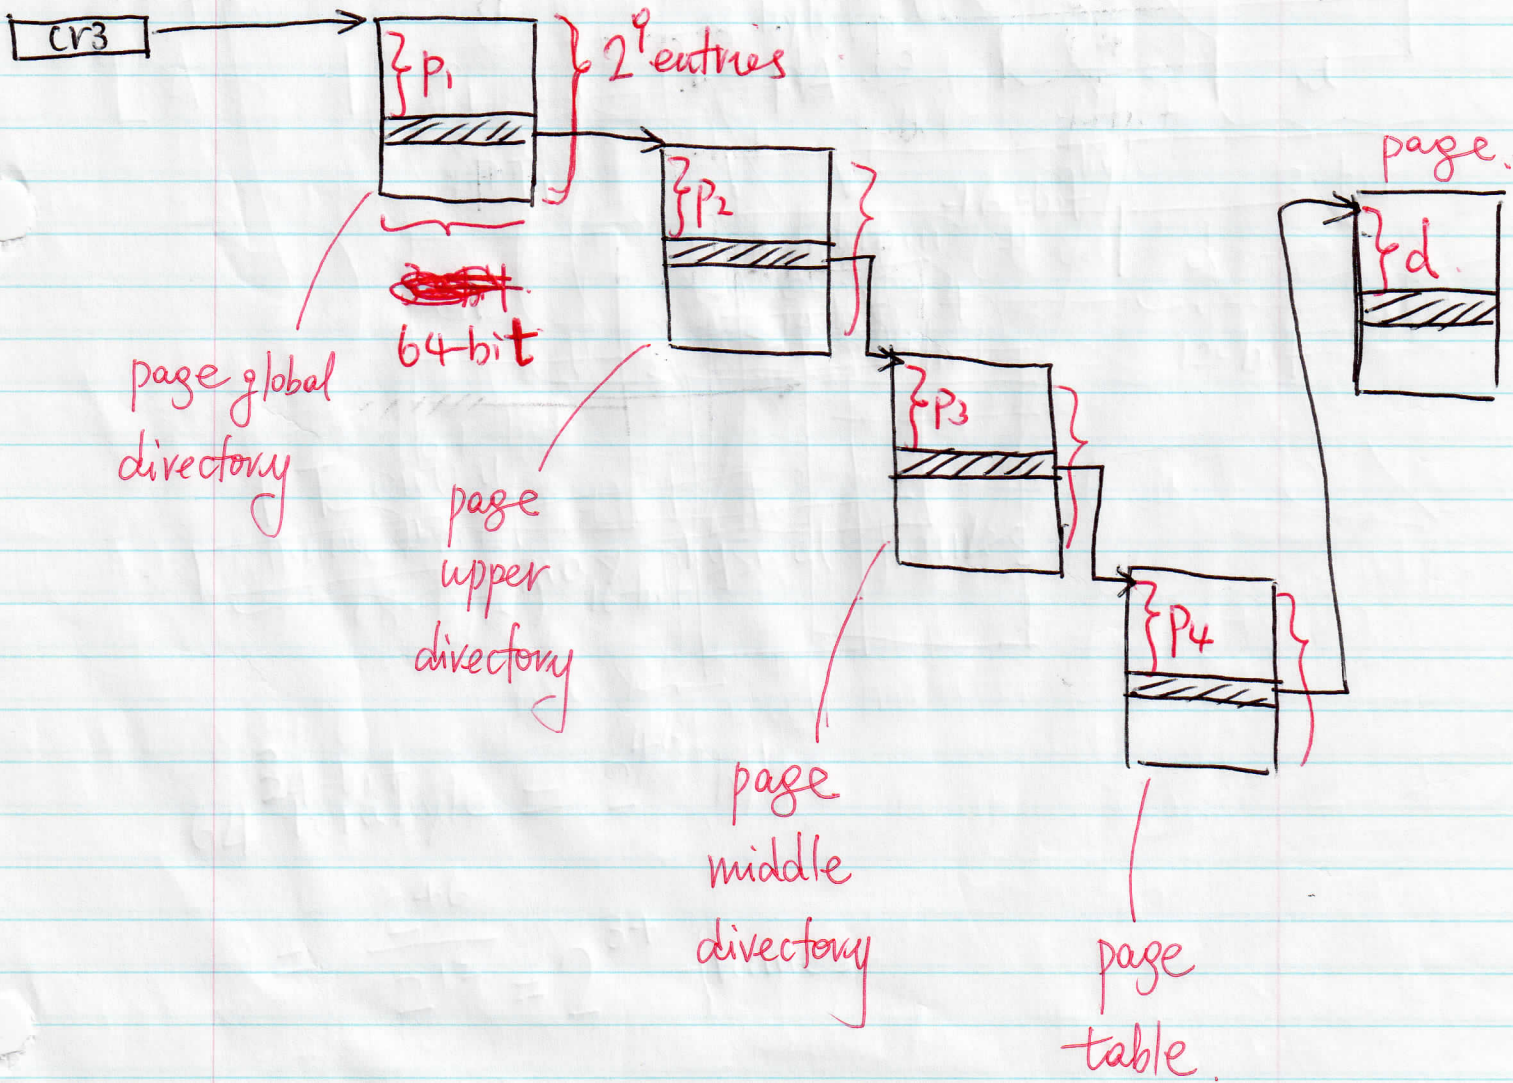 cr3
p1
2^9 entries
64-bit
page global
directory
p2
page
upper
directory
p3
page
middle
directory
p4
page
table.
page.
d.